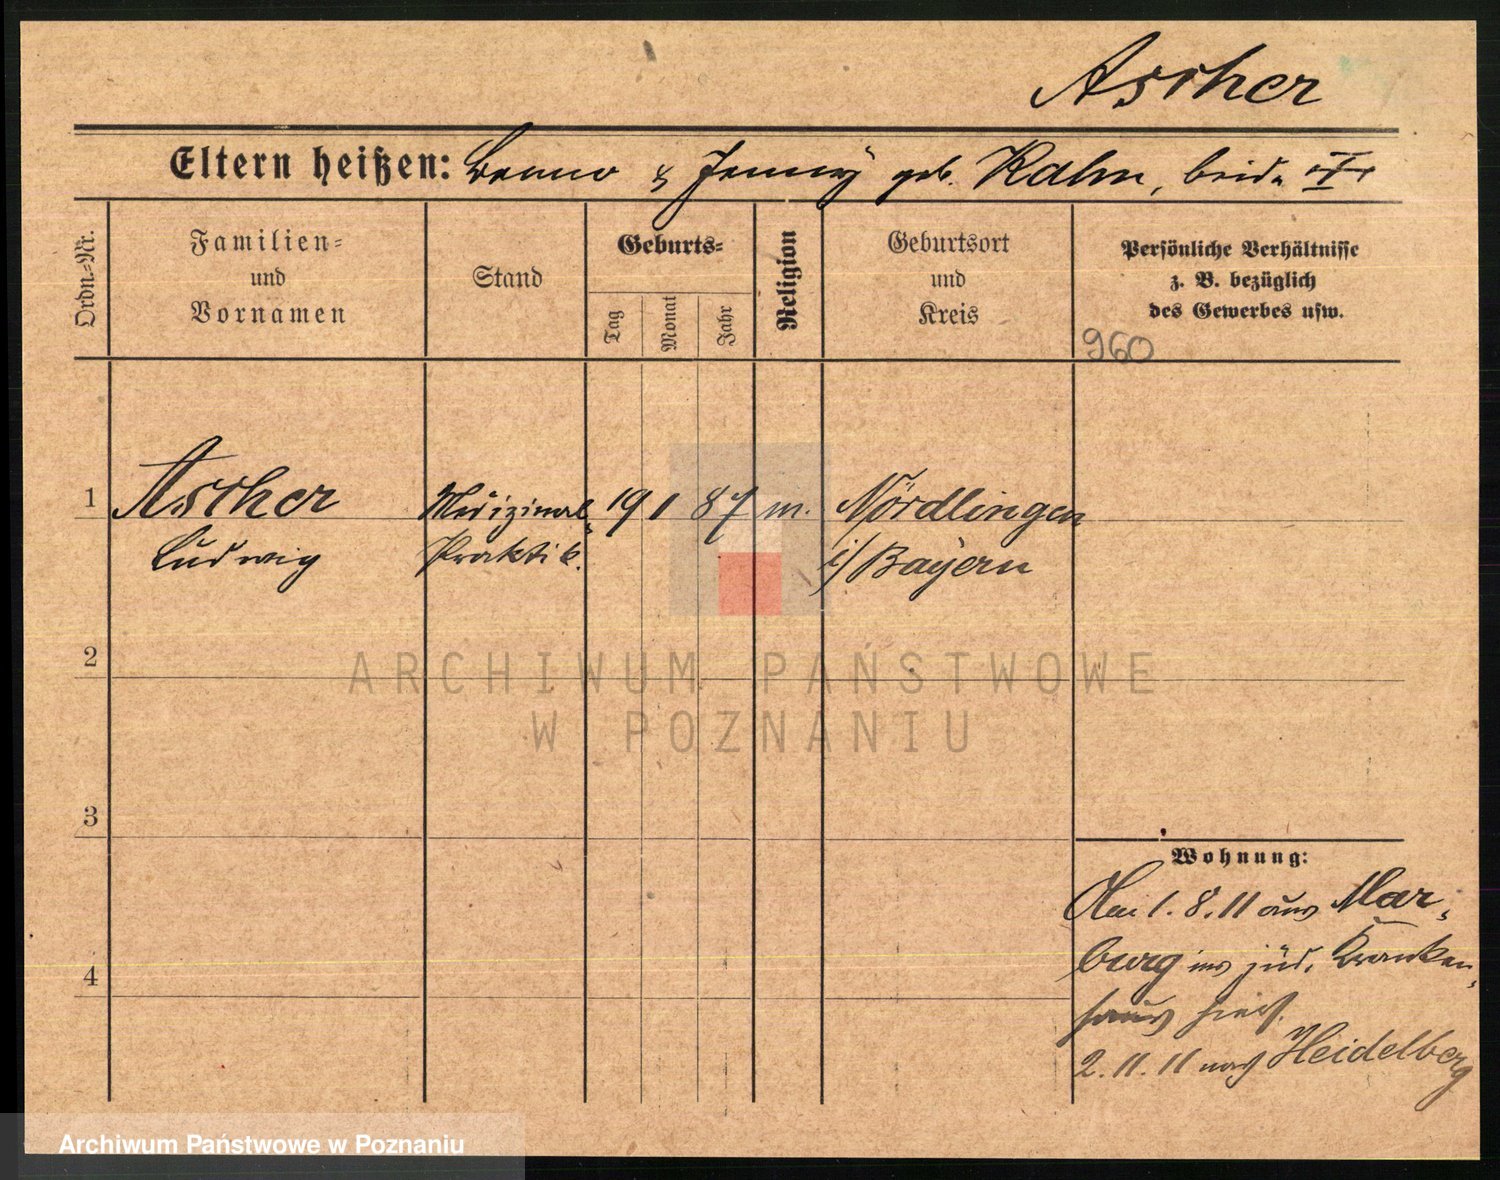 Ascher
Eltern heißen: Benno & Jenny geb. Kahn, beide
Ordn.=Nr.
Familien=
und
Vornamen
Stand
Geburts=
Tag
Monat
Jahr
Religion
Geburtsort
und
Kreis
Persönliche Verhältnisse
z. B. bezüglich
des Gewerbes usw.
960
1 Ascher Medizinal- 19 1 87 m. Nördlingen
Ludwig Praktik. i/Bayern
2
3
4
Wohnung:
Am 1.8.11 aus Mar-
burg ins jüd. Kranken-
haus hier.
2.11.11 nach Heidelberg
ARCHIWUM PAŃSTWOWE
W POZNANIU
Archiwum Państwowe w Poznaniu